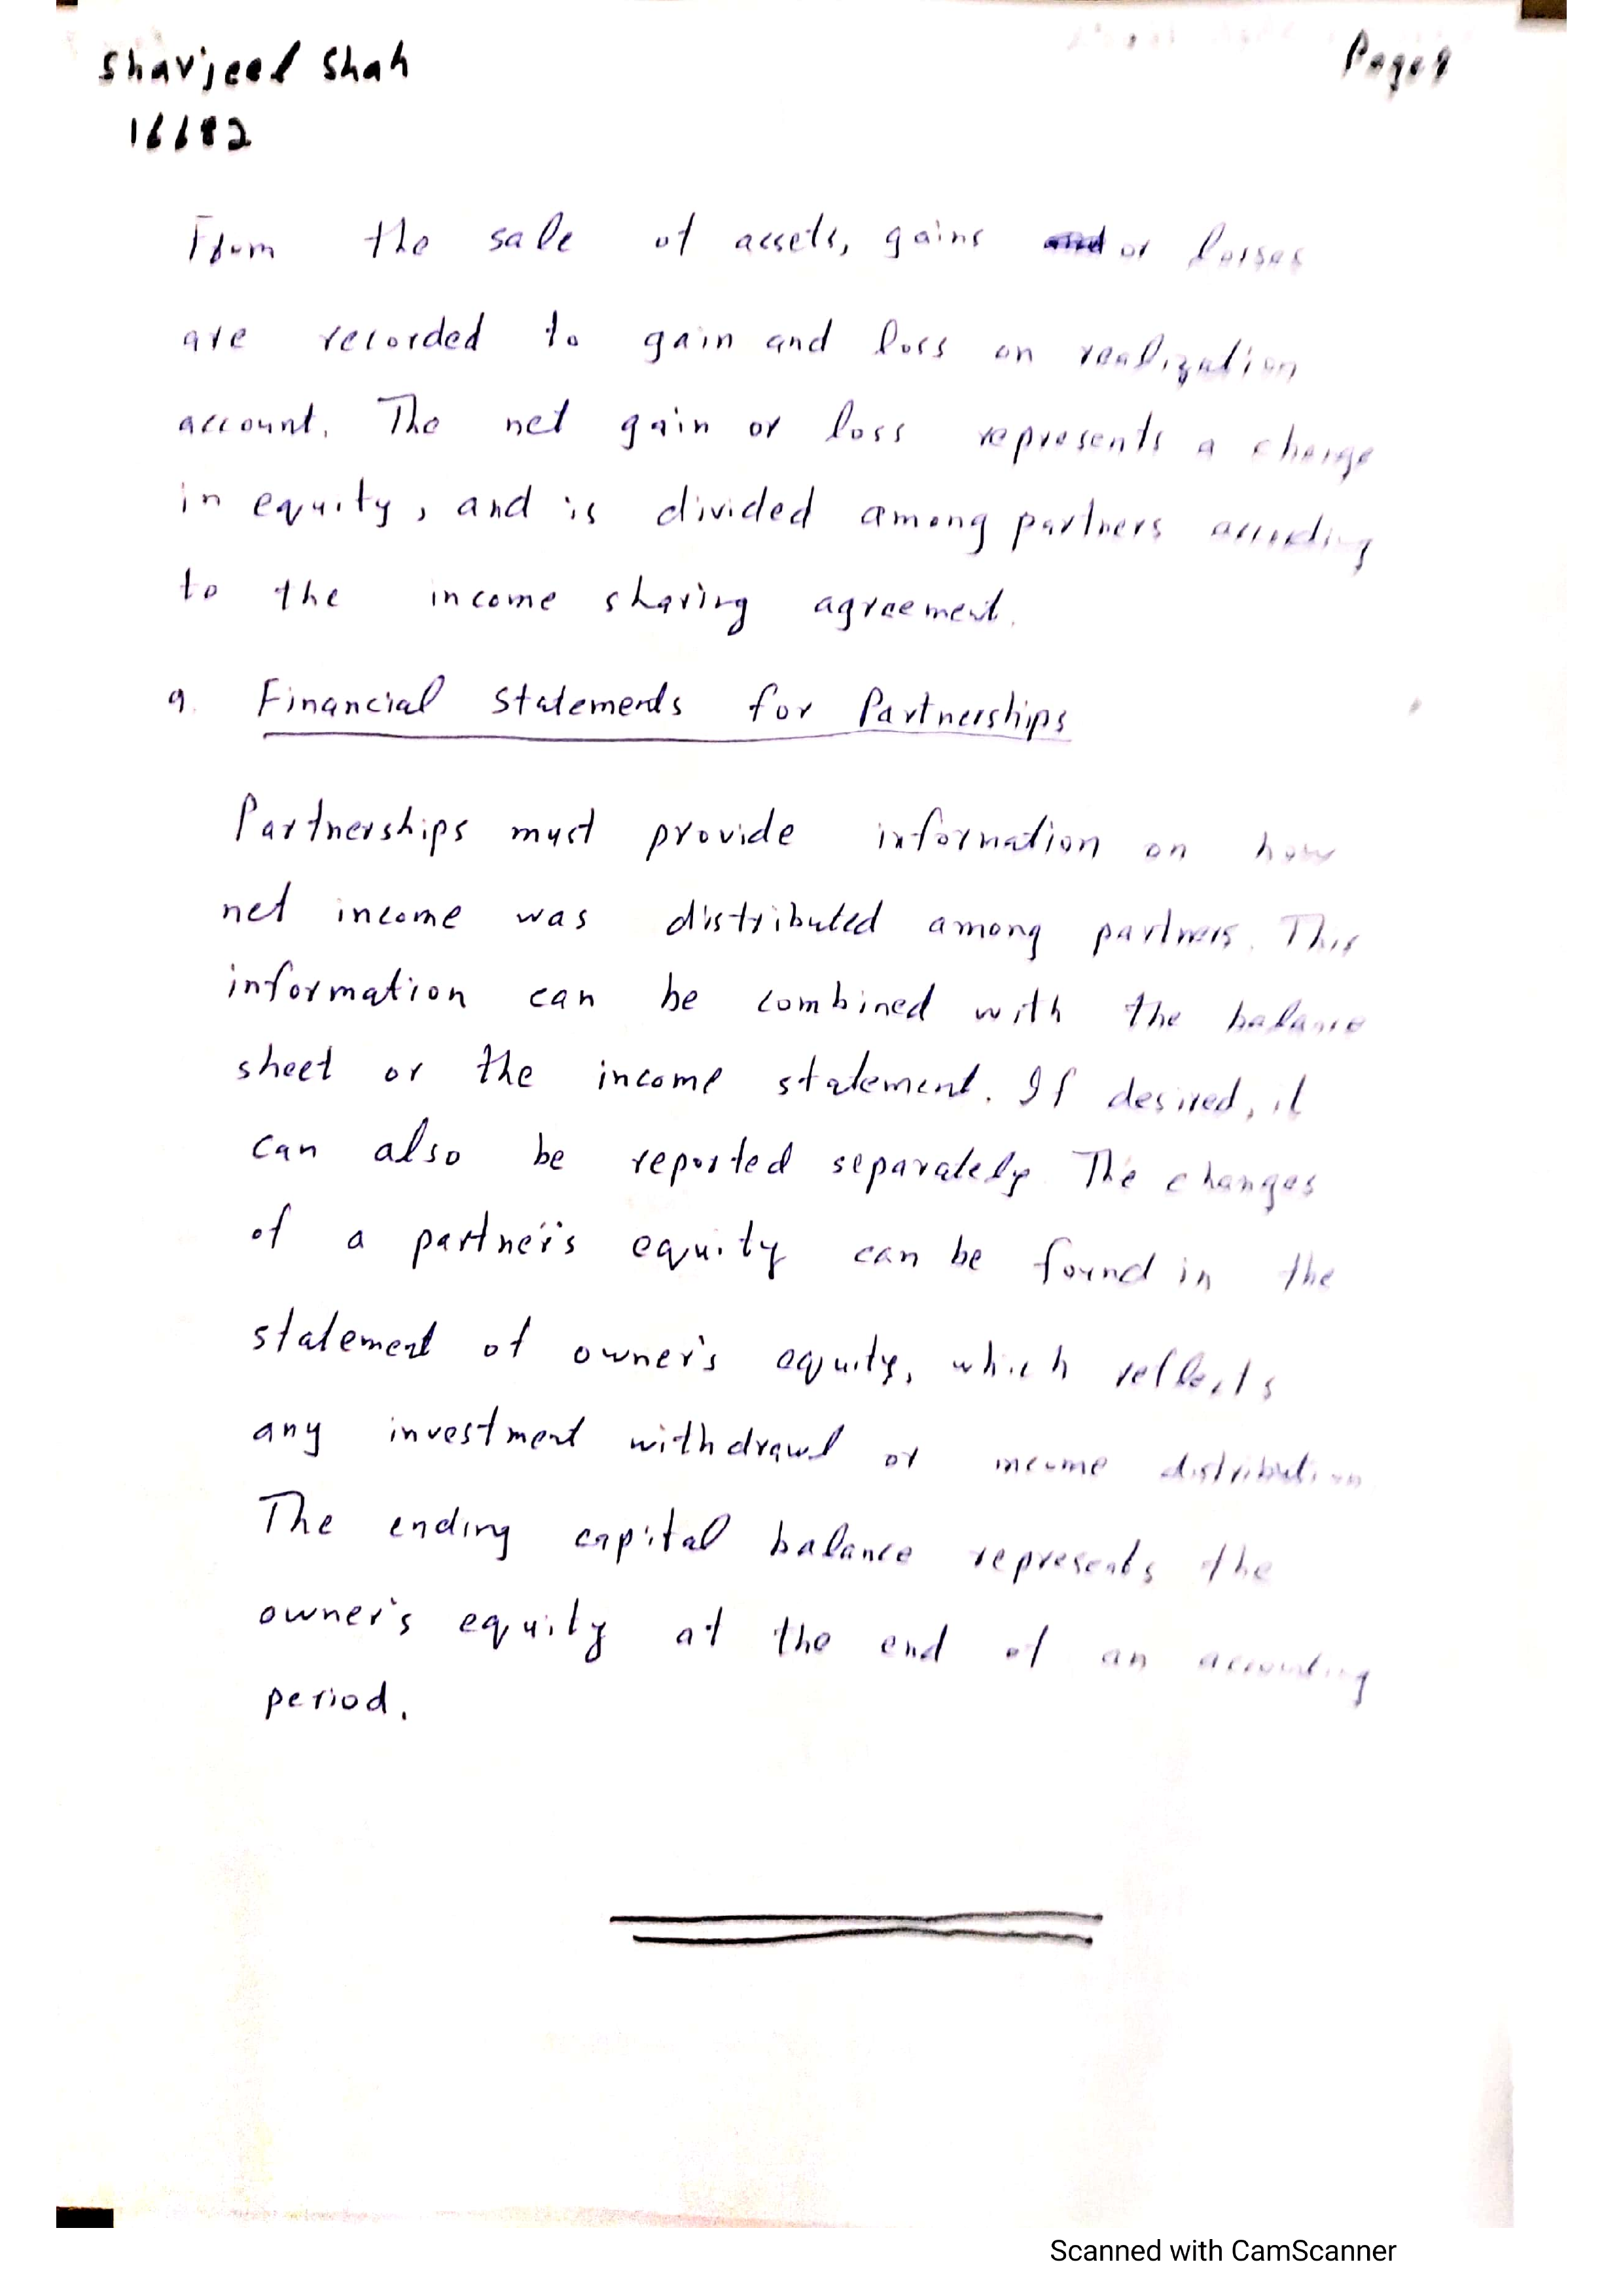 Sharjeel Shah
Page 9
16682
From the sale of assets, gains or losses
are recorded to gain and loss on realization
account. The net gain or loss represents a change
in equity, and is divided among partners according
to the income sharing agreement.
9. Financial Statements for Partnerships
Partnerships must provide information on how
net income was distributed among partners. This
information can be combined with the balance
sheet or the income statement. If desired, it
can also be reported separately. The changes
of a partner's equity can be found in the
statement of owner's equity, which reflects
any investment withdrawl or income distribution
The ending capital balance represents the
owner's equity at the end of an accounting
period.
Scanned with CamScanner